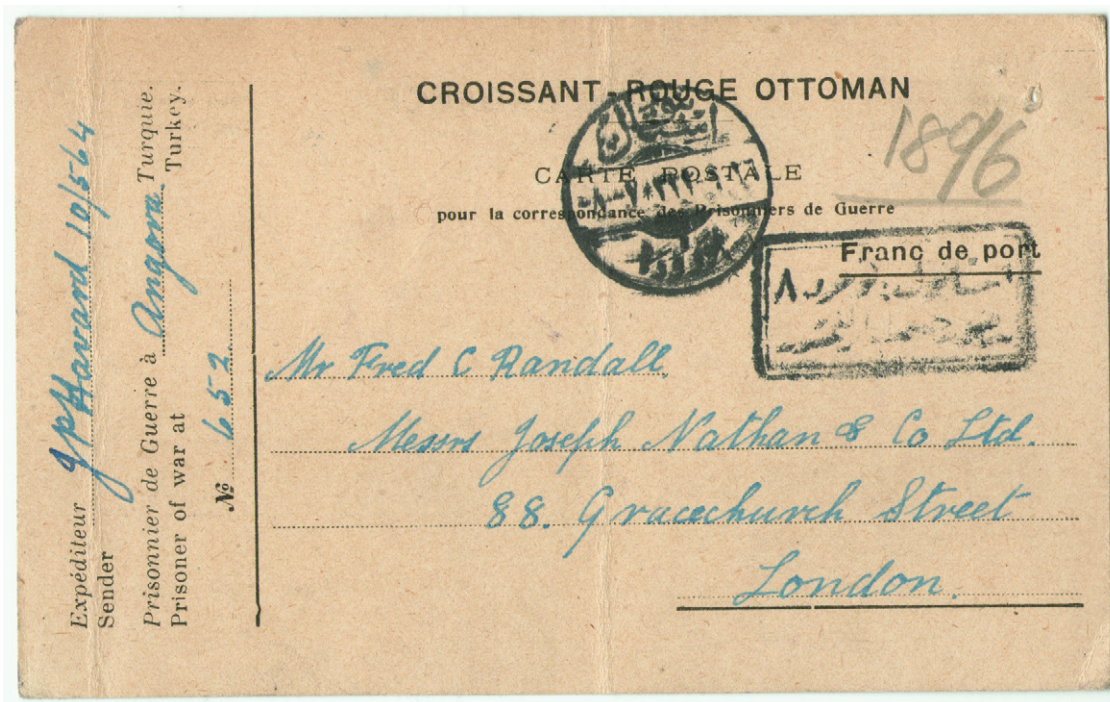 CROISSANT-ROUGE OTTOMAN
1896
CARTE POSTALE
pour la correspondance des Prisonniers de Guerre
Franc de port
Mr Fred C Randall
Messrs Joseph Nathan & Co Ltd.
88. Gracechurch Street
London.
Expéditeur JP Havard 10/564
Sender
Prisonnier de Guerre à Angora Turquie.
Prisoner of war at Turkey.
№ 652